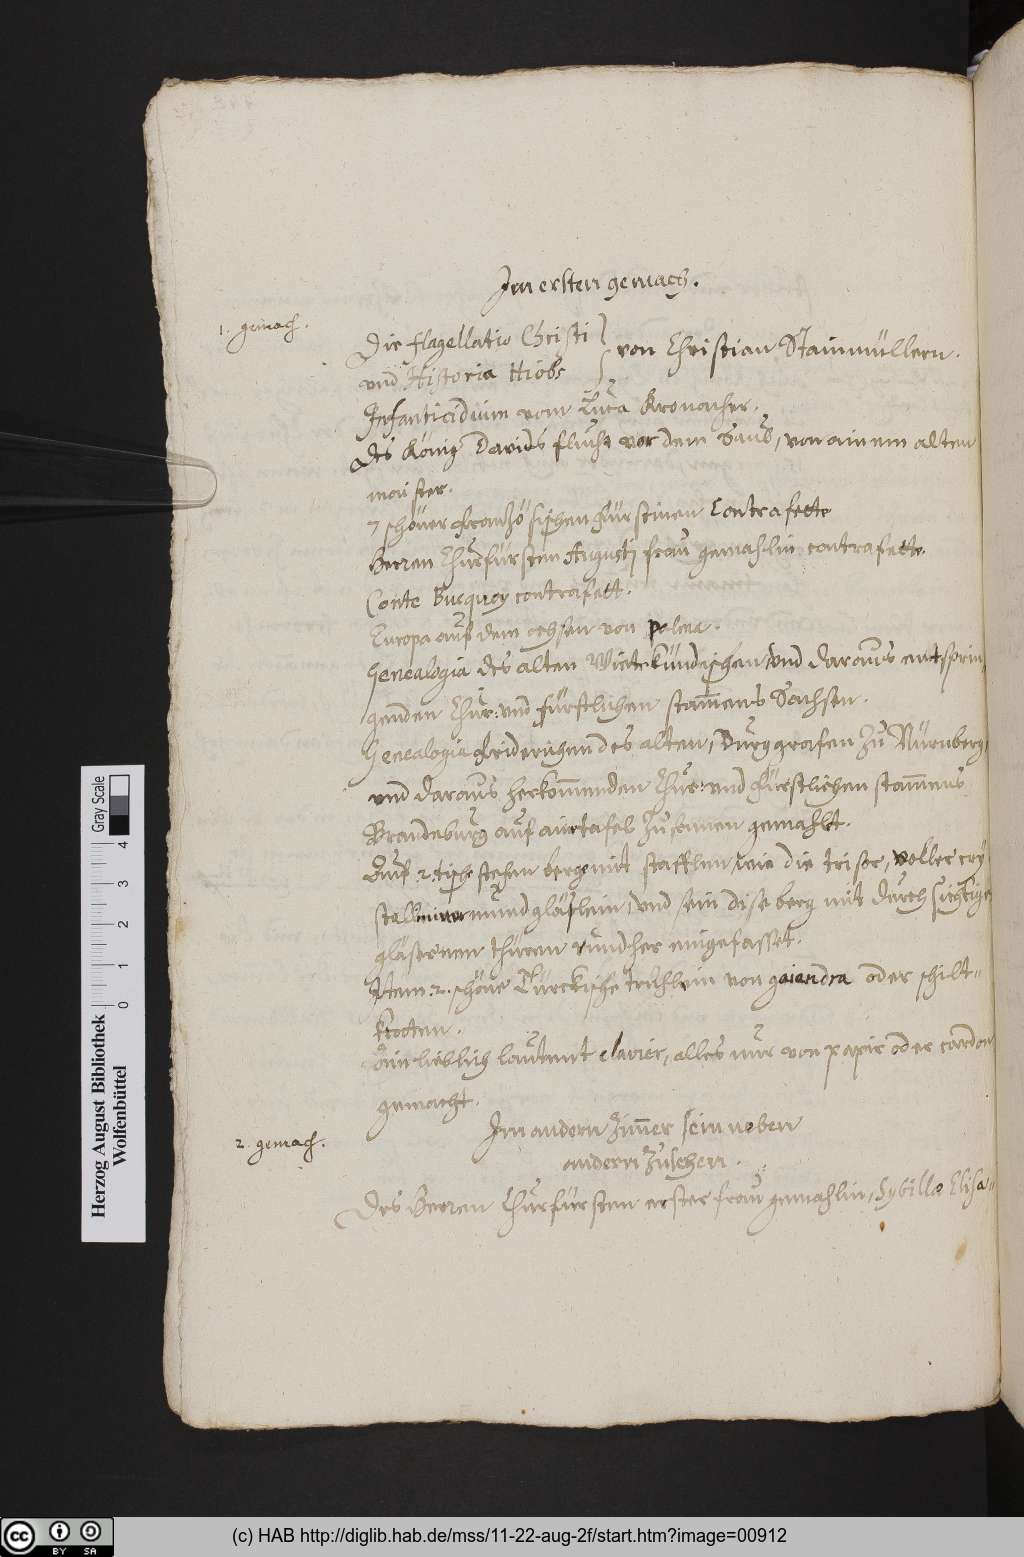 Im ersten gemach.
1. gemach.
Die flagellatio Christi
und Historia Hiobs
von Christian Stainmüllern.
Infanticidium vom Luca Kronacher.
des König Davids flucht vor dem Saul, von ainem alten
maister.
7 schöner französischen fürstinen Contrafette
Herren Churfürsten Augusti frau gemahlin contrafette.
Conte Bucquoy contrafett.
Europa auf dem ochsen von palma.
Genealogia des alten Wittekündischen und daraus entsprin
genden Chur: und fürstlichen stam̄ens Sachsen.
Genealogia des alten, Burggrafen zu Nürnberg,
und daraus herkom̄enden Chur: und fürstlichen stam̄ens
Brandeburg auf ain tafel zusamen gemahlt.
Auf 2. tisch stehen berge mit stafflen, wie die trisor, voller cry
stalliner mundgläslein, und sein dise berg mit durchsichtige
gläsernen thüren rundher eingefasset.
Item 2. schöne Türckische trühlein von gaiandra oder schilt-
krotten.
Ain lieblich lautent clavier, alles nur von papir oder cardon
gemacht.
2. gemach.
Im andern zim̄er sein neben
andern zusehen.
Des Herren Churfürsten erster frau gemahlin, Sybillæ Elisa-
Herzog August Bibliothek
Wolfenbüttel
Gray Scale
0 1 2 3 4
(c) HAB http://diglib.hab.de/mss/11-22-aug-2f/start.htm?image=00912
cc BY SA